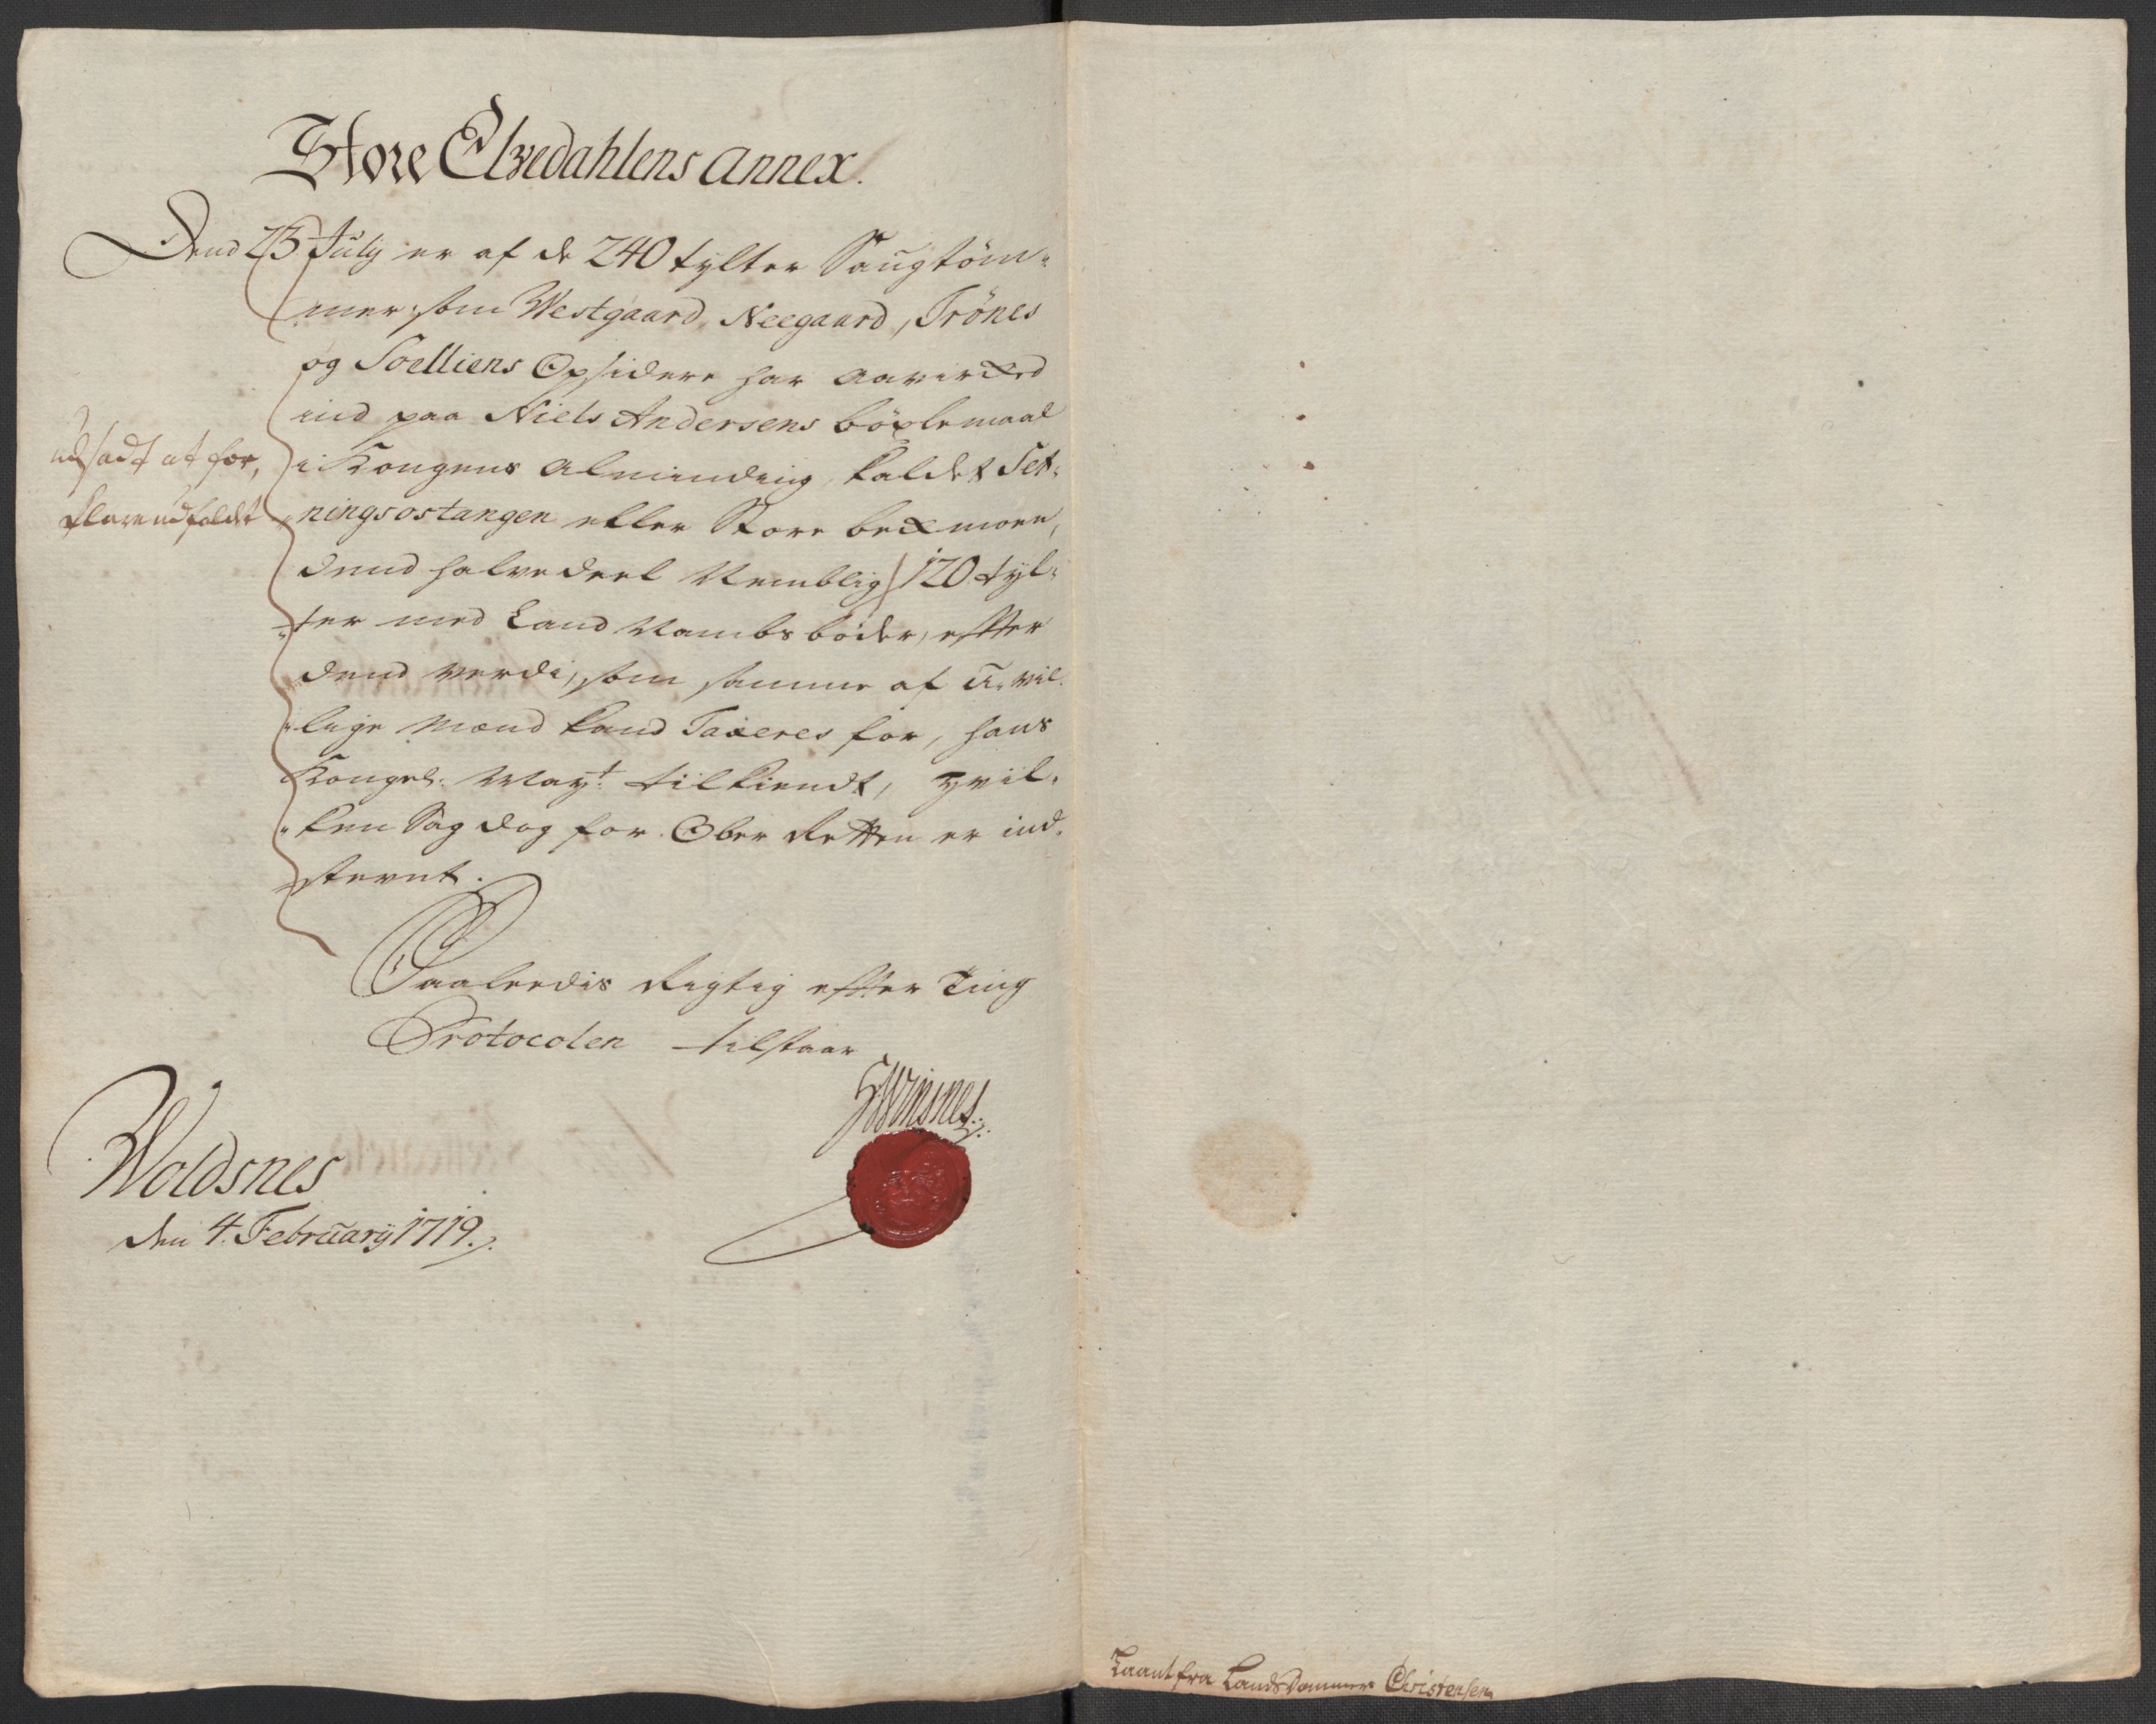 Store Elvedahlens Annex.
Dend 25 July er af de 240 tylter Saugtøm-
mer, som Westgaard, Neegaard, Trönes
og Soelliens Opsidere har aavirked
ind paa Niels Andersens böxlemaal
i Kongens Alminding kaldet Set-
ningsostangen eller Store bekmoen,
dend halvedeel Nemblig 120 tyl-
ter med Land Nambs bøder, efter
dend verdi, som samme af u-vil-
lige Mænd kand Taxeres for, hans
Kongel: May.t tilkiendt, hvil-
ken Sag dog for Ober Retten er ind-
stevnt.
udsadt at for,
klare udfaldet
Saaledis Rigtig efter Ting
Protocolen tilstaar
Woldsnes
den 4. February 1719.
Laant fra Landsdommer Christensen